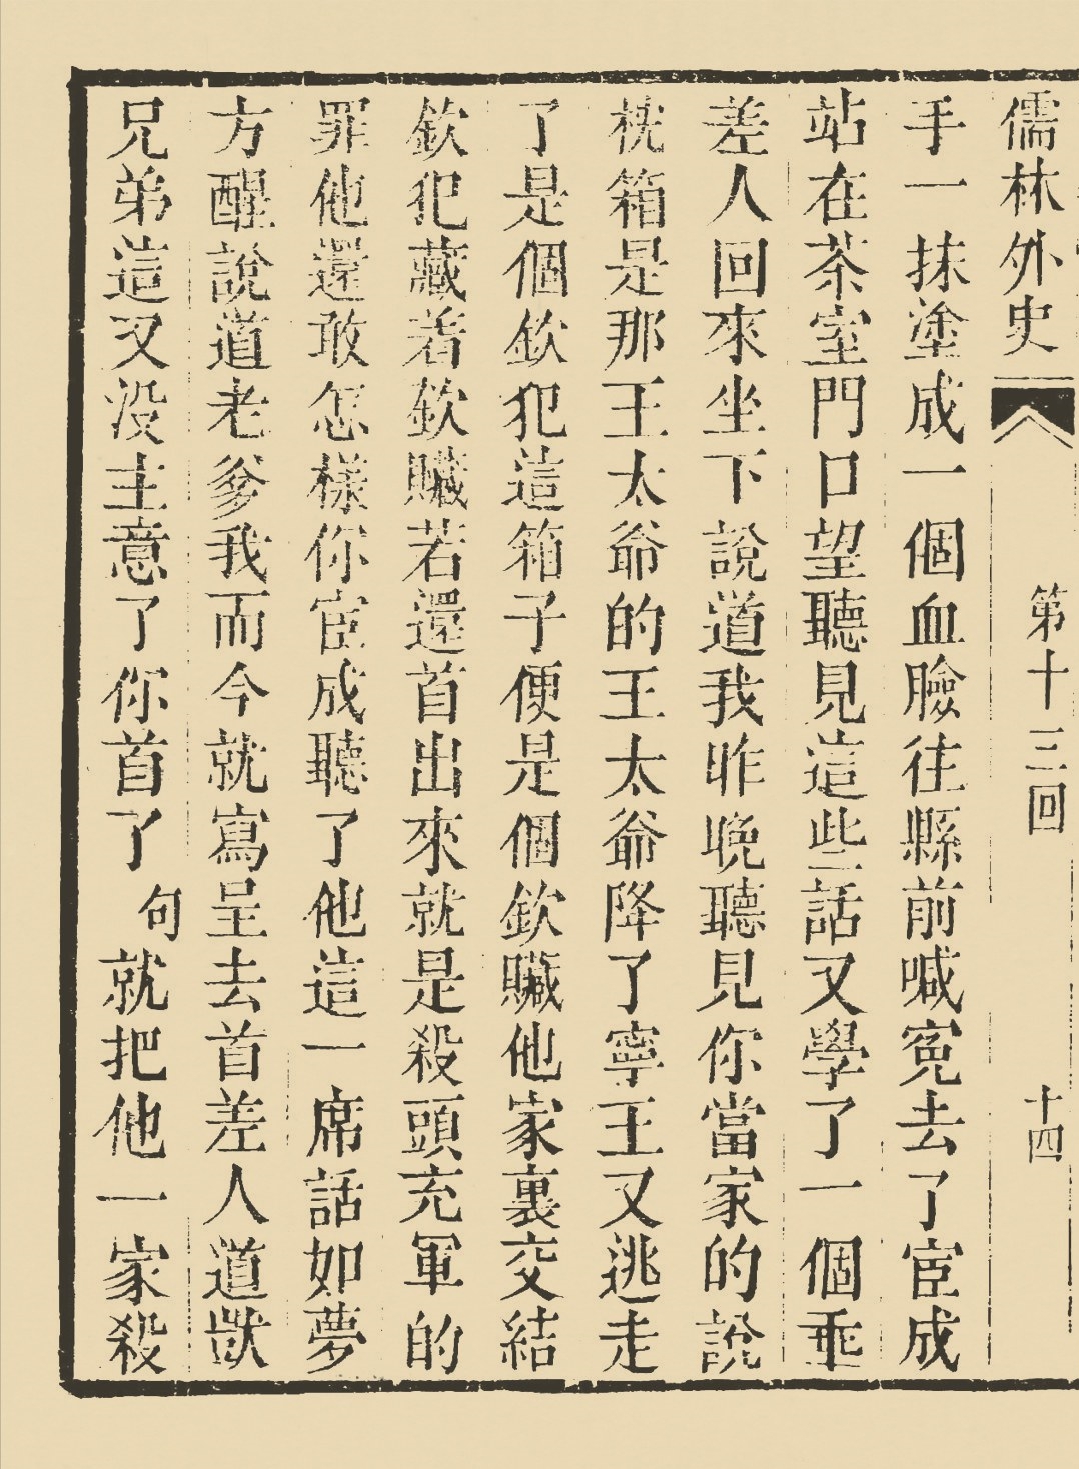 儒林外史 第十三回 十四
手一抹塗成一個血臉往縣前喊寃去了宦成
站在茶室門口望聽見這些話又學了一個乖
差人回來坐下說道我昨晚聽見你當家的說
枕箱是那王太爺的王太爺降了寧王又逃走
了是個欽犯這箱子便是個欽贓他家裏交結
欽犯藏着欽贓若還首出來就是殺頭充軍的
罪他還敢怎樣你宦成聽了他這一席話如夢
方醒說道老爹我而今就寫呈去首差人道獃
兄弟這又没主意了你首了句就把他一家殺